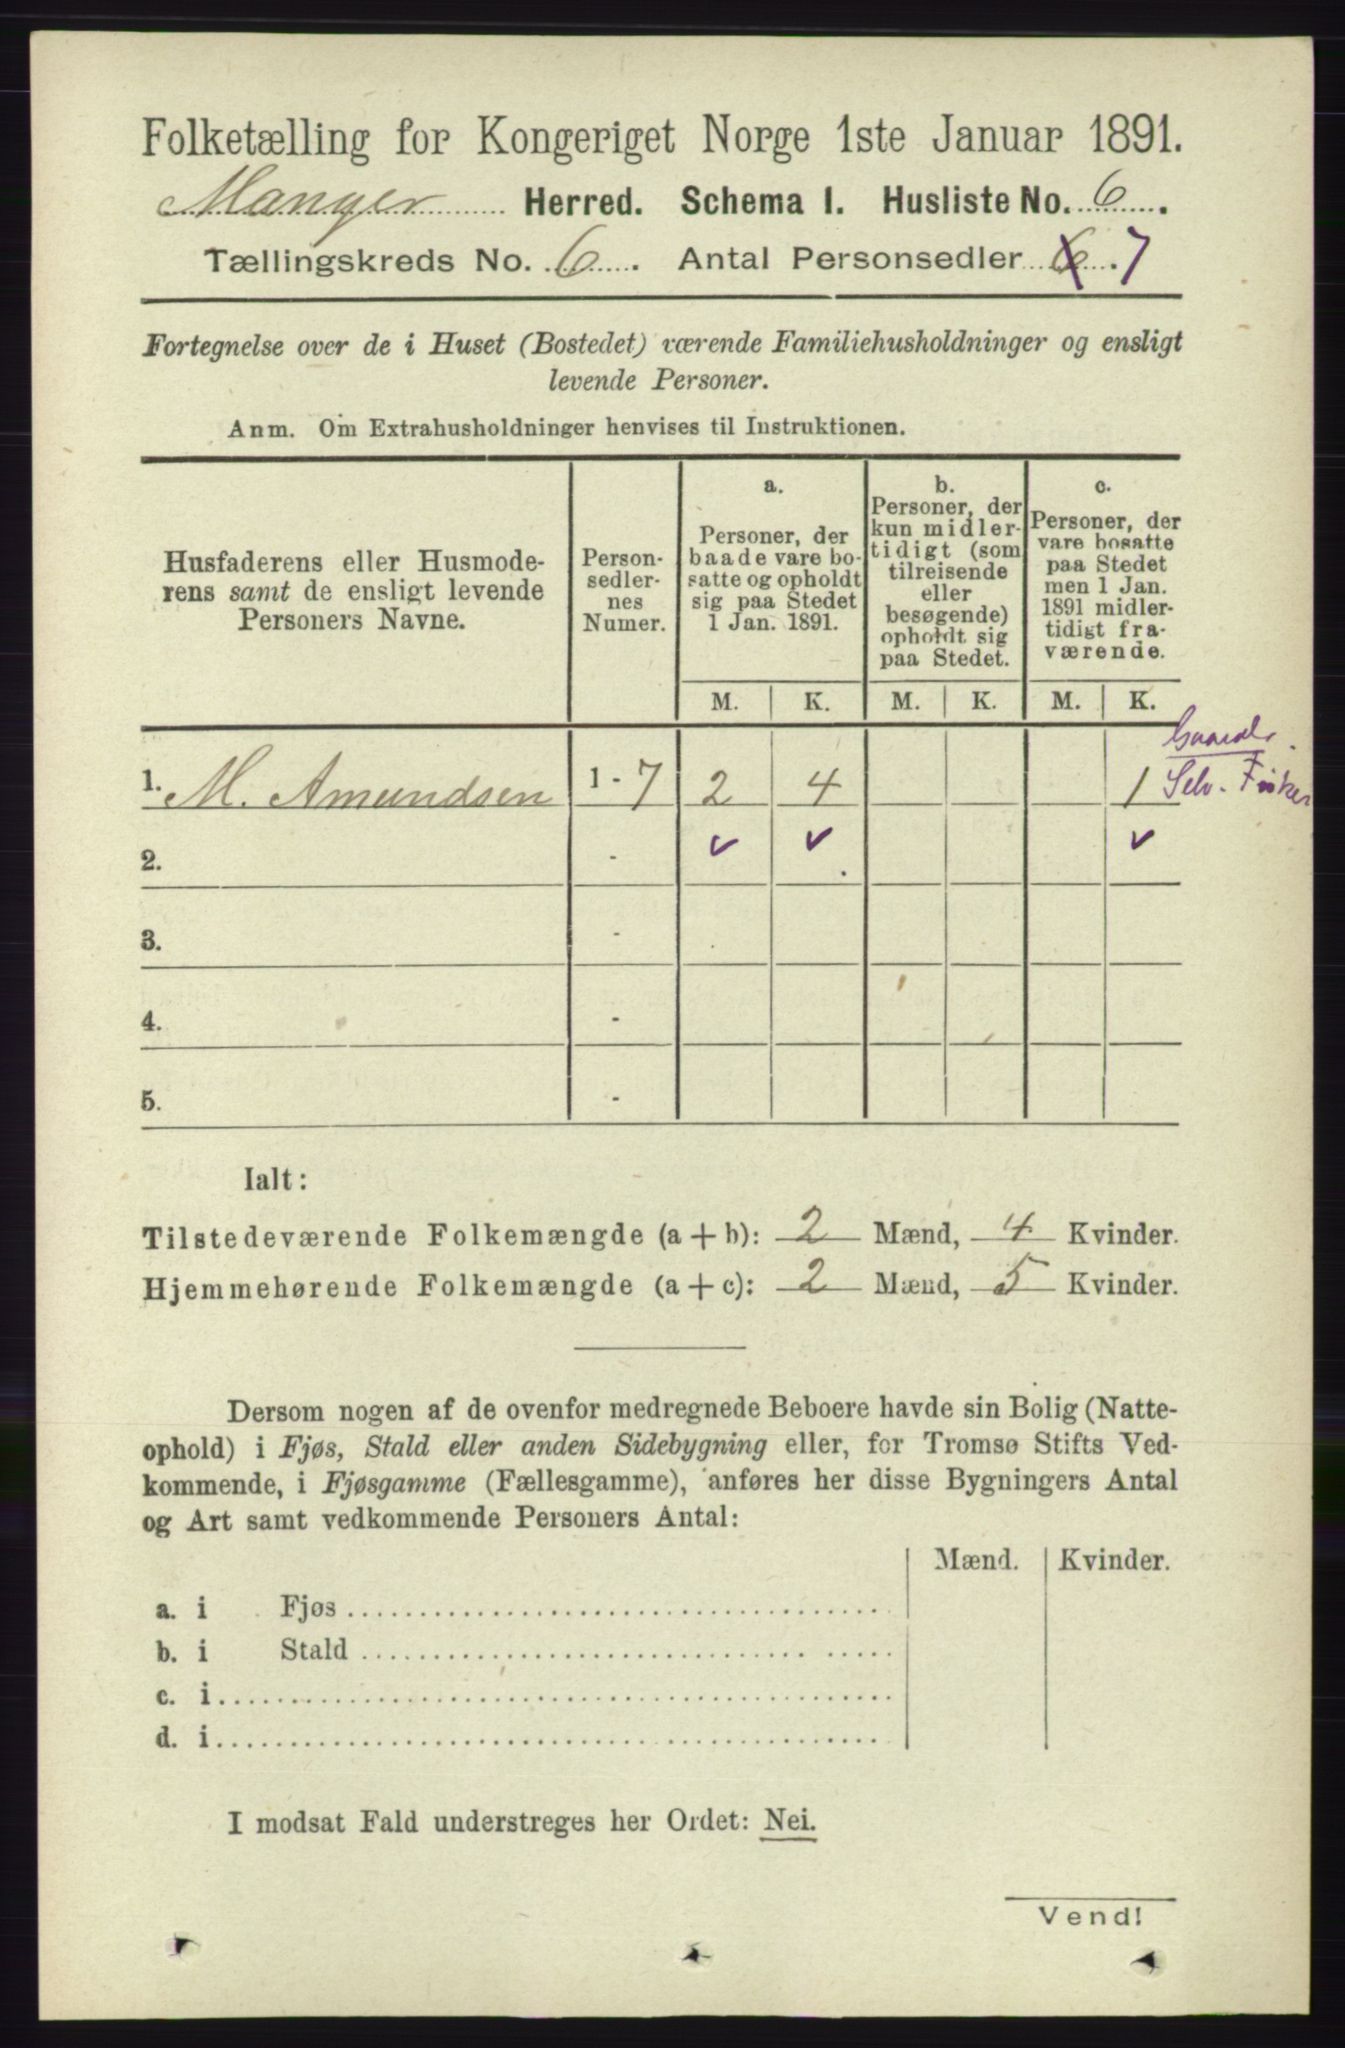 Folketælling for Kongeriget Norge 1ste Januar 1891.
Manger Herred. Schema I. Husliste No. 6.
Tællingskreds No. 6. Antal Personsedler 6. 7
Fortegnelse over de i Huset (Bostedet) værende Familiehusholdninger og ensligt
levende Personer.
Anm. Om Extrahusholdninger henvises til Instruktionen.
Husfaderens eller Husmode-
rens samt de ensligt levende
Personers Navne.
Person-
sedler-
nes
Numer.
a.
Personer, der
baade vare bo-
satte og opholdt
sig paa Stedet
1 Jan. 1891.
b.
Personer, der
kun midler-
tidigt (som
tilreisende
eller
besøgende)
opholdt sig
paa Stedet.
c.
Personer, der
vare bosatte
paa Stedet
men 1 Jan.
1891 midler-
tidigt fra-
værende.
M. K. M. K. M. K.
1. M. Amundsen 1 - 7 2 4 1 Selv. Fisker
2. - ✓ ✓ ✓
3. -
4. -
5. -
Ialt:
Tilstedeværende Folkemængde (a + b): 2 Mænd, 4 Kvinder.
Hjemmehørende Folkemængde (a + c): 2 Mænd, 5 Kvinder.
Dersom nogen af de ovenfor medregnede Beboere havde sin Bolig (Natte-
ophold) i Fjøs, Stald eller anden Sidebygning eller, for Tromsø Stifts Ved-
kommende, i Fjøsgamme (Fællesgamme), anføres her disse Bygningers Antal
og Art samt vedkommende Personers Antal:
Mænd. Kvinder.
a. i Fjøs
b. i Stald
c. i
d. i
I modsat Fald understreges her Ordet: Nei.
Vend!